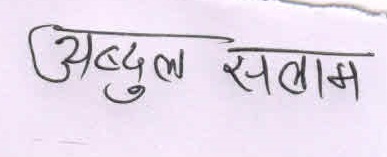 अब्दुल सलाम